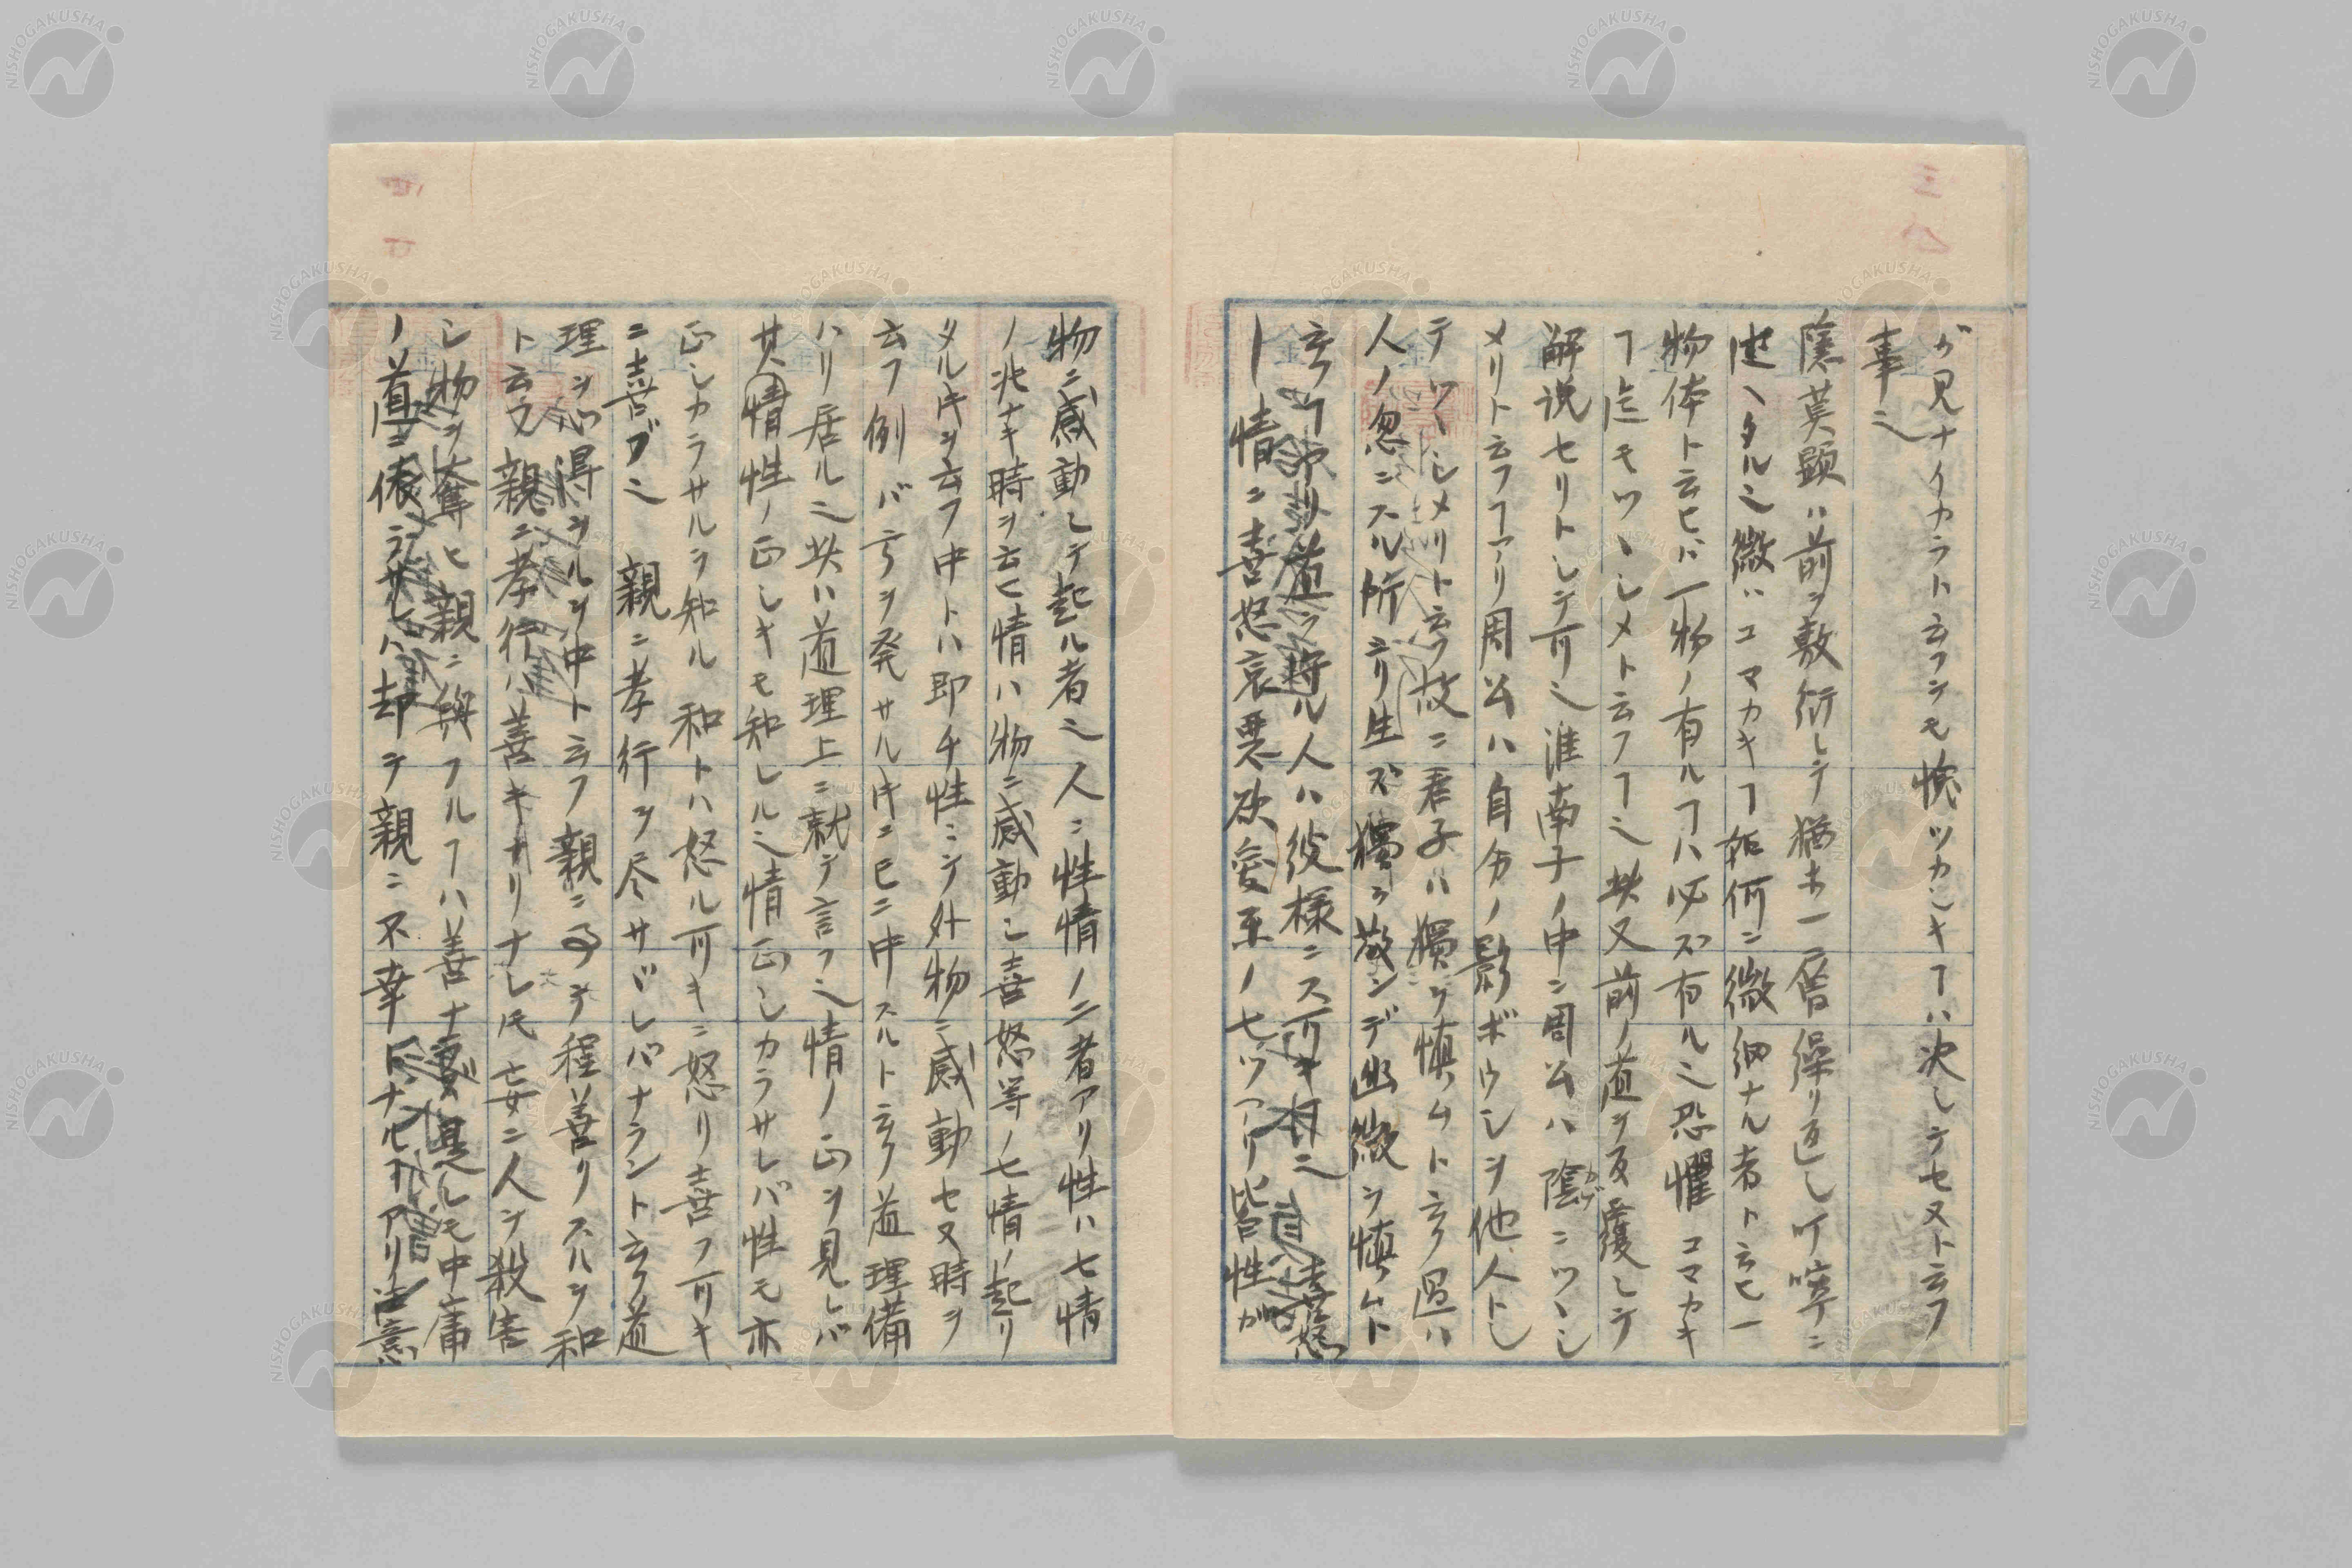 ガ見ナイカラト云フンモ愧ツカシキヿハ決シテセヌト云フ
事也
隱莫顕ハ前ヲ敷衍シテ猶ホ一層繰リ返シ叮嚀ニ
述ヘタル也微ハコマカキヿ如何ニ微細ナル者ト云ヒ一
物体ト云ヒバ一物ノ有ルヿハ必ズ有ル也恐懼コマカキ
ヿ迄モツヽシメト云フヿ也共又前ノ道ヲ反覆シテ
解説セリトシテ可也淮南子ノ中ニ周公ハ陰ニツヽシ
メリト云フヿアリ周公ハ自分ノ影ボウシヲ他人トシ
テツヽシメリト云フ故ニ君子ハ獨ヲ慎ムト云フ過ハ
人ノ忽ニスル所ヨリ生ズ獨ヲ敬ンデ幽微ヲ慎ムト
云フ道ヲ得ル人ハ彼様ニス可キ也 喜怒
ー情ニ喜怒哀悪欲愛ノ七ツアリ皆性ガ
物ニ感動シテ起ル者也人ニ性情ノ二者アリ性ハ七情
ノ兆ナキ時ヲ云ヒ情ハ物ニ感動シ喜怒等ノ七情ノ起リ
タル時ヲ云フ中トハ即チ性ニシテ外物ニ感動セヌ時ヲ
云フ例バ言ヲ発サル時ニ已ニ中スルト云フ道理備
ハリ居ル也共ハ道理上ニ就テ言フ也情ノ正ヲ見レバ
其情性ノ正シキモ知レル也情正シカラサレバ性モ亦
正シカラサルヲ知ル 和トハ怒ル可キニ怒リ喜フ可キ
ニ喜ブ也 親ニ孝行ヲ尽サヾレバナラント云フ道
理ヲ心得ヲルヲ中ト云フ親ニ事テ程善リスルヲ和
ト云フ親ニ孝行ハ善キナリナレ𪜈妄ニ人ヲ殺害
シ物ヲ奪ヒ親ニ與フルヿハ善ナ是レモ中庸
ノ道ニ依ラサレハ却テ親ニ不幸トナルヿアリ注意